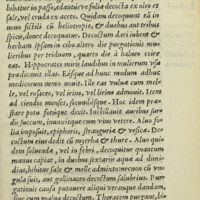 bibitur in passo, tantùm folia decocta ex oleo et
sale, vel cruda ex aceto. Quidam decoquunt id in
novo fictili cū heliotropio, & duabus aut tribus
spicis, donec decoquatur. Decoctum dari iubent &
herbam ipsam in cibo altero die purgationis mu-
lieribus per triduum, quarto die à balneo coëun
tes. Hippocrates mirè laudibus in mulierum usu
prædicant illas. Easque ad hunc modum adhuc
medicorum nemo novit. Ille eas vulvæ cum mel-
le, vel rosaceo, vel irino, vel lirino admovit. Item
ad ciendos menses, secundásque. Hoc idem præ-
stare potu fotúque dixit. Instillavit auribus sur-
dis succum, inunxitque cum vino vetere. Alvo fo
lia imposuit, epiphoris, stranguriæ & vesicæ. De-
coctum eius dedit cū myrrha & thure. Alvo qui-
dem solvendæ, vel in febri, decoquitur quantum
manus capiat, in duobus sextariis aquæ ad dimi
dias, bibitur sale & melle admixto: necnon cū un-
gula suis, aut gallinaceo decoctum salubrius. Pur
gationis causa putavere aliqui utranque dandam,
sive cum malva decoctum. Thoracem purgant, bi-